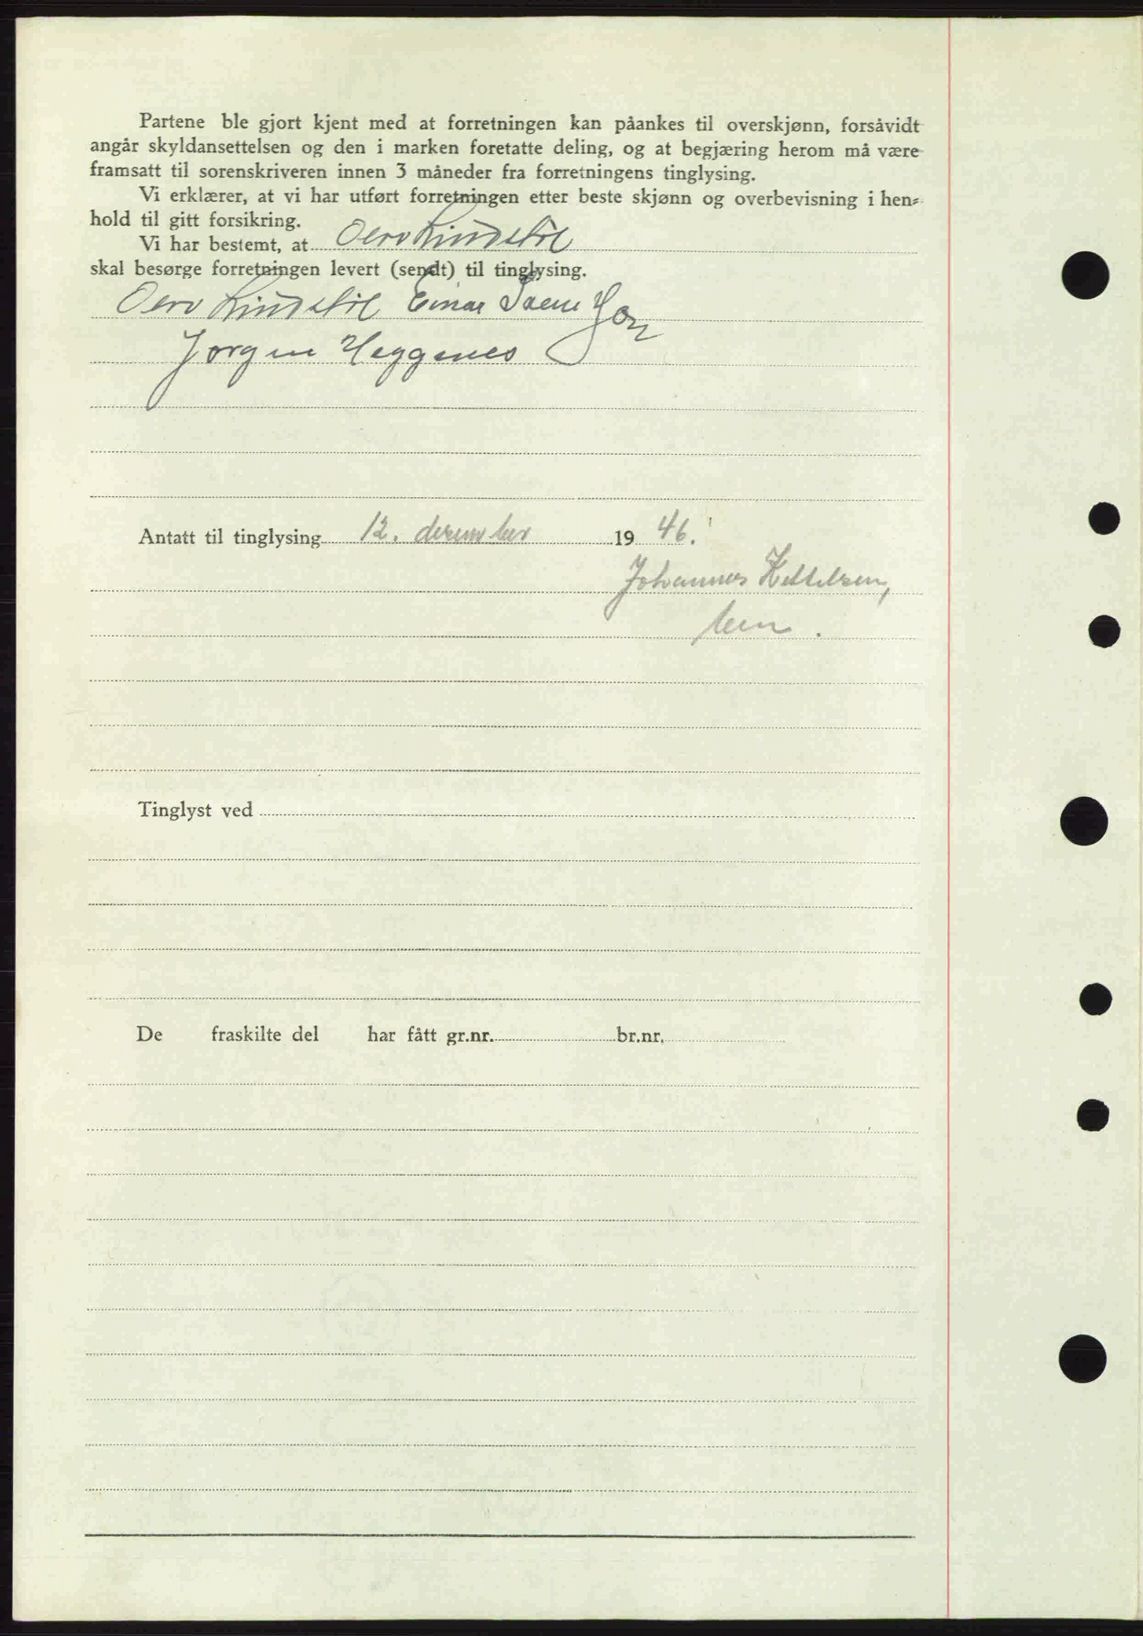 Partene ble gjort kjent med at forretningen kan påankes til overskjønn, forsåvidt
angår skyldansettelsen og den i marken foretatte deling, og at begjæring herom må være
framsatt til sorenskriveren innen 3 måneder fra forretningens tinglysing.
Vi erklærer, at vi har utført forretningen etter beste skjønn og overbevisning i hen=
hold til gitt forsikring.
Vi har bestemt, at
skal besørge forretningen levert (sendt) til tinglysing.
Einar
Jørgen Heggenes
Antatt til tinglysing 12. desember 1946.
Johannes Kettelsen,
Tinglyst ved
De fraskilte del har fått gr.nr. br.nr.